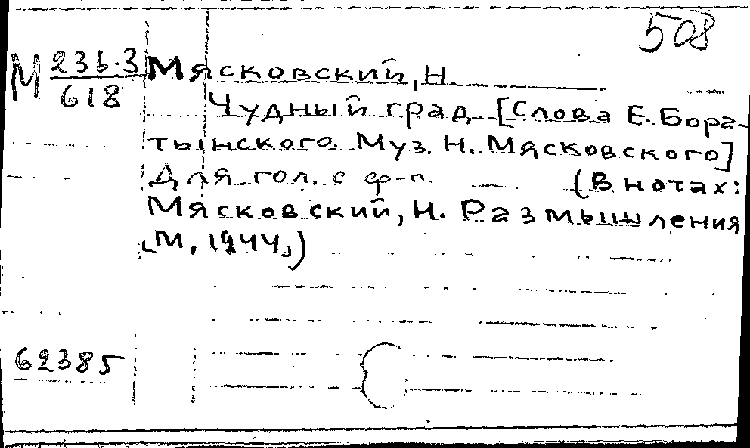 508
М 236.3 Мясковский, Н.
618
Чудный град [Слова Е. Бора-
тынского Муз. Н. Мясковского]
Для гол. с ф-п. — (В нотах:
Мясковский, Н. Размышления
[М, 1944])
62385